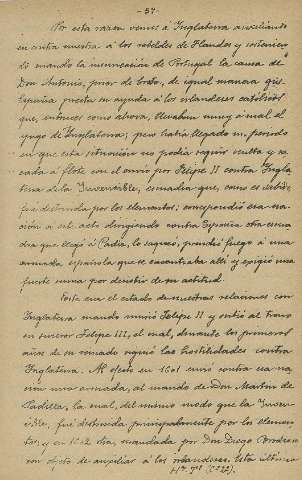 - 57 -
Por esta razon vemos á Inglaterra auxiliando
en contra nuestra á los rebeldes de Flandes y sostenien
do cuando la insurrección de Portugal la causa de
Don Antonio, prior de Crato, de igual manera que
España presta su ayuda á los irlandeses católicos
que, entonces como ahora, llevaban muy a mal el
yugo de Inglaterra; pero había llegado un período
en que esta situación no podía seguir oculta y sa
cada á flote con el envío por Felipe II contra Ingla
terra de la Invencible, escuadra que, como es sabido,
fué destruida por los elementos; correspondió esa na
ción á este acto dirigiendo contra España otra escua
dra que llegó á Cadiz, lo saqueó, prendió fuego á una
armada española que se encontraba allí y exigió una
fuerte suma por desistir de su actitud.
Este era el estado de nuestras relaciones con
Inglaterra cuando murió Felipe II y subió al trono
su sucesor Felipe III, el cual, durante los primeros
años de su reinado siguió las hostilidades contra
Inglaterra. Al efecto en 1601 envió contra esa na
ción una armada, al mando de Don Martin de
Padilla, la cual, del mismo modo que la Inven
cible, fué destruida principalmente por los elemen
tos, y en 1602 otra, mandada por Don Diego Brochero
con objeto de auxiliar á los irlandeses. Esta última